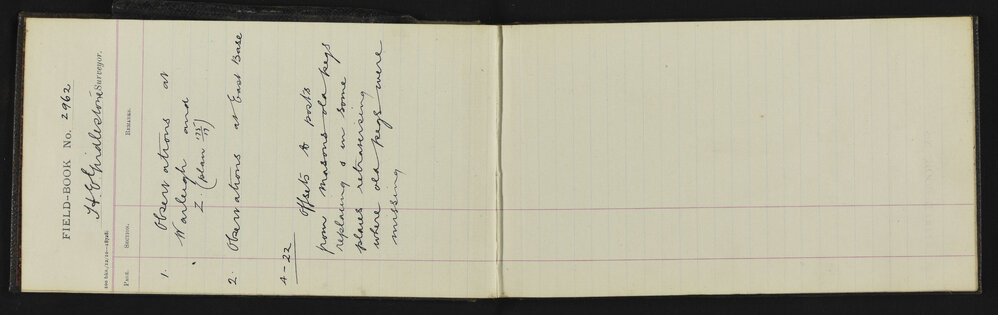 FIELD-BOOK No. 2962
H. E. Girdlestone Surveyor.
PAGE. SECTION. REMARKS.
1. Observations at
Warleigh and
Z. (plan
2. Observations at East Base
4-22
Offsets to posts
from Masons old pegs
replacing & in some
places retraversing
where old pegs were
missing